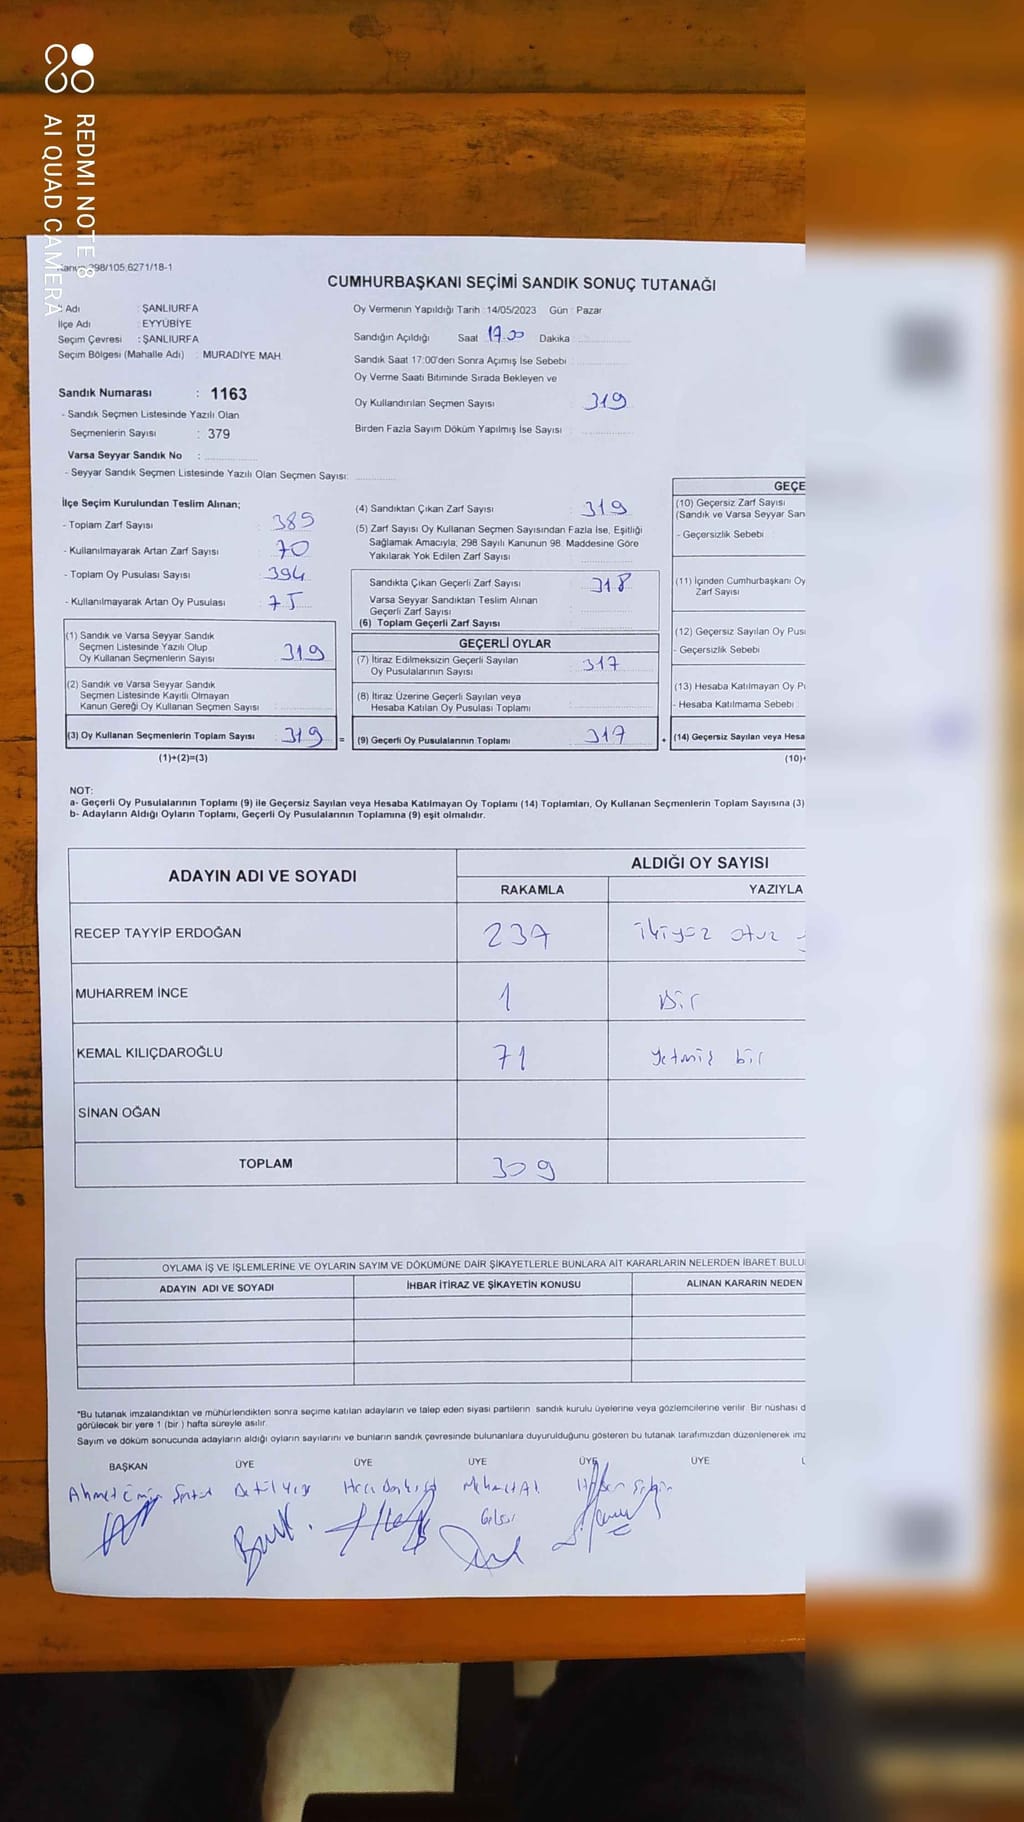 REDMI NOTE 8
AI QUAD CAMERA
298/105;6271/18-1
CUMHURBAŞKANI SEÇİMİ SANDIK SONUÇ TUTANAĞI
İl Adı : ŞANLIURFA
İlçe Adı : EYYÜBİYE
Seçim Çevresi : ŞANLIURFA
Seçim Bölgesi (Mahalle Adı) : MURADİYE MAH.
Sandık Numarası : 1163
- Sandık Seçmen Listesinde Yazılı Olan
Seçmenlerin Sayısı : 379
Varsa Seyyar Sandık No :
- Seyyar Sandık Seçmen Listesinde Yazılı Olan Seçmen Sayısı:
Oy Vermenin Yapıldığı Tarih : 14/05/2023 Gün : Pazar
Sandığın Açıldığı Saat 17.00 Dakika
Sandık Saat 17:00'den Sonra Açımış İse Sebebi
Oy Verme Saati Bitiminde Sırada Bekleyen ve
Oy Kullandırılan Seçmen Sayısı 319
Birden Fazla Sayım Döküm Yapılmış İse Sayısı
İlçe Seçim Kurulundan Teslim Alınan;
- Toplam Zarf Sayısı : 389
- Kullanılmayarak Artan Zarf Sayısı : 70
- Toplam Oy Pusulası Sayısı : 394
- Kullanılmayarak Artan Oy Pusulası : 75
(1) Sandık ve Varsa Seyyar Sandık
Seçmen Listesinde Yazılı Olup
Oy Kullanan Seçmenlerin Sayısı : 319
(2) Sandık ve Varsa Seyyar Sandık
Seçmen Listesinde Kayıtlı Olmayan
Kanun Gereği Oy Kullanan Seçmen Sayısı :
(3) Oy Kullanan Seçmenlerin Toplam Sayısı : 319 =
(1)+(2)=(3)
(4) Sandıktan Çıkan Zarf Sayısı : 319
(5) Zarf Sayısı Oy Kullanan Seçmen Sayısından Fazla İse, Eşitliği
Sağlamak Amacıyla; 298 Sayılı Kanunun 98. Maddesine Göre
Yakılarak Yok Edilen Zarf Sayısı :
Sandıkta Çıkan Geçerli Zarf Sayısı : 318
Varsa Seyyar Sandıktan Teslim Alınan
Geçerli Zarf Sayısı :
(6) Toplam Geçerli Zarf Sayısı
GEÇERLİ OYLAR
(7) İtiraz Edilmeksizin Geçerli Sayılan
Oy Pusulalarının Sayısı : 317
(8) İtiraz Üzerine Geçerli Sayılan veya
Hesaba Katılan Oy Pusulası Toplamı :
(9) Geçerli Oy Pusulalarının Toplamı : 317 +
GEÇE
(10) Geçersiz Zarf Sayısı
(Sandık ve Varsa Seyyar San
- Geçersizlik Sebebi
(11) İçinden Cumhurbaşkanı Oy
Zarf Sayısı
(12) Geçersiz Sayılan Oy Pus
- Geçersizlik Sebebi
(13) Hesaba Katılmayan Oy P
- Hesaba Katılmama Sebebi
(14) Geçersiz Sayılan veya Hesa
(10)+
NOT:
a- Geçerli Oy Pusulalarının Toplamı (9) ile Geçersiz Sayılan veya Hesaba Katılmayan Oy Toplamı (14) Toplamları, Oy Kullanan Seçmenlerin Toplam Sayısına (3)
b- Adayların Aldığı Oyların Toplamı, Geçerli Oy Pusulalarının Toplamına (9) eşit olmalıdır.
ADAYIN ADI VE SOYADI ALDIĞI OY SAYISI
RAKAMLA YAZIYLA
RECEP TAYYİP ERDOĞAN 237 ikiyüz otuz
MUHARREM İNCE 1 Bir
KEMAL KILIÇDAROĞLU 71 Yetmiş bir
SİNAN OĞAN
TOPLAM 309
OYLAMA İŞ VE İŞLEMLERİNE VE OYLARIN SAYIM VE DÖKÜMÜNE DAİR ŞİKAYETLERLE BUNLARA AİT KARARLARIN NELERDEN İBARET BULU
ADAYIN ADI VE SOYADI İHBAR İTİRAZ VE ŞİKAYETİN KONUSU ALINAN KARARIN NEDEN
"Bu tutanak imzalandıktan ve mühürlendikten sonra seçime katılan adayların ve talep eden siyasi partilerin sandık kurulu üyelerine veya gözlemcilerine verilir. Bir nüshası d
görülecek bir yere 1 (bir ) hafta süreyle asılır.
Sayım ve döküm sonucunda adayların aldığı oyların sayılarını ve bunların sandık çevresinde bulunanlara duyurulduğunu gösteren bu tutanak tarafımızdan düzenlenerek imz
BAŞKAN ÜYE ÜYE ÜYE ÜYE ÜYE
Ahmet Emin Mehmet Al